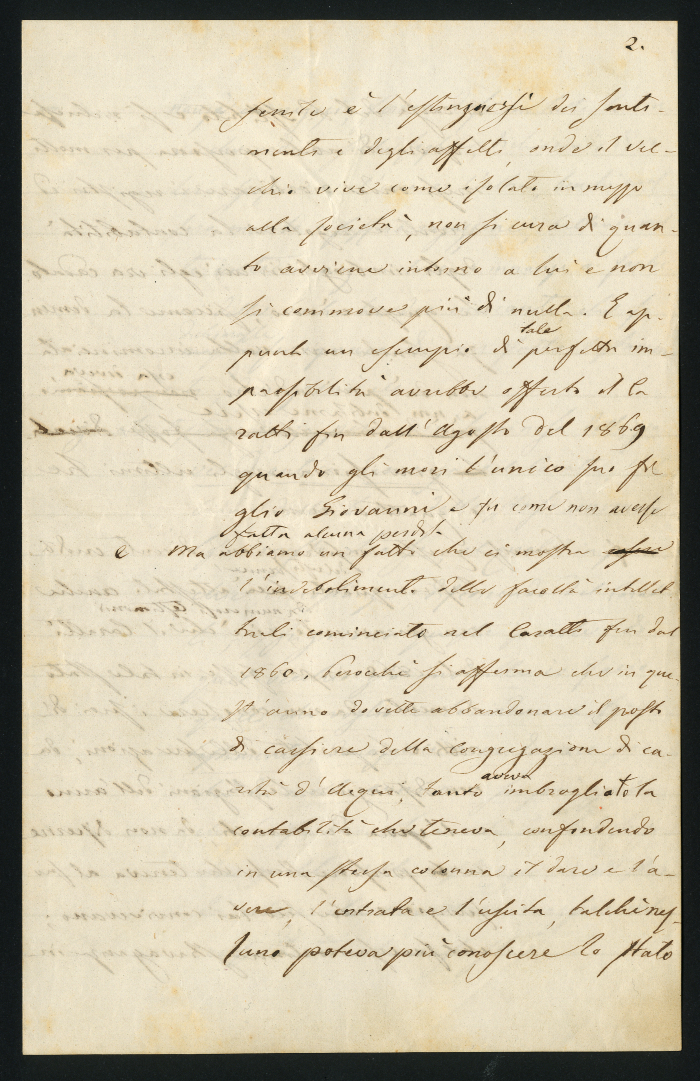 2.
senile è l'estinguersi dei senti-
menti e degli affetti, onde il vec-
chio vive come isolato in mezzo
alla società, non si cura di quan-
to avviene intorno a lui e non
si commove più di nulla. E ap-
tale
punto un esempio di perfetta im-
passibilità avrebbe offerto il Ca-
ratti fin dall'Agosto del 1869
quando gli morì l'unico suo fi-
glio Giovanni e fu come non avesse
fatta alcuna perdita
e Ma abbiamo un fatto che ci mostra
l'indebolimento delle facoltà intellet-
tuali cominciato nel Caratti fin dal
1860. Perocchè si afferma che in que-
st'anno dovette abbandonare il posto
di cassiere della Congregazione di ca-
aveva
rità d'Acqui, tanto imbrogliato la
contabilità che teneva, confondendo
in una stessa colonna il dare e l'a-
vere, l'entrata e l'uscita, talchè nes-
suno poteva più conoscere lo stato